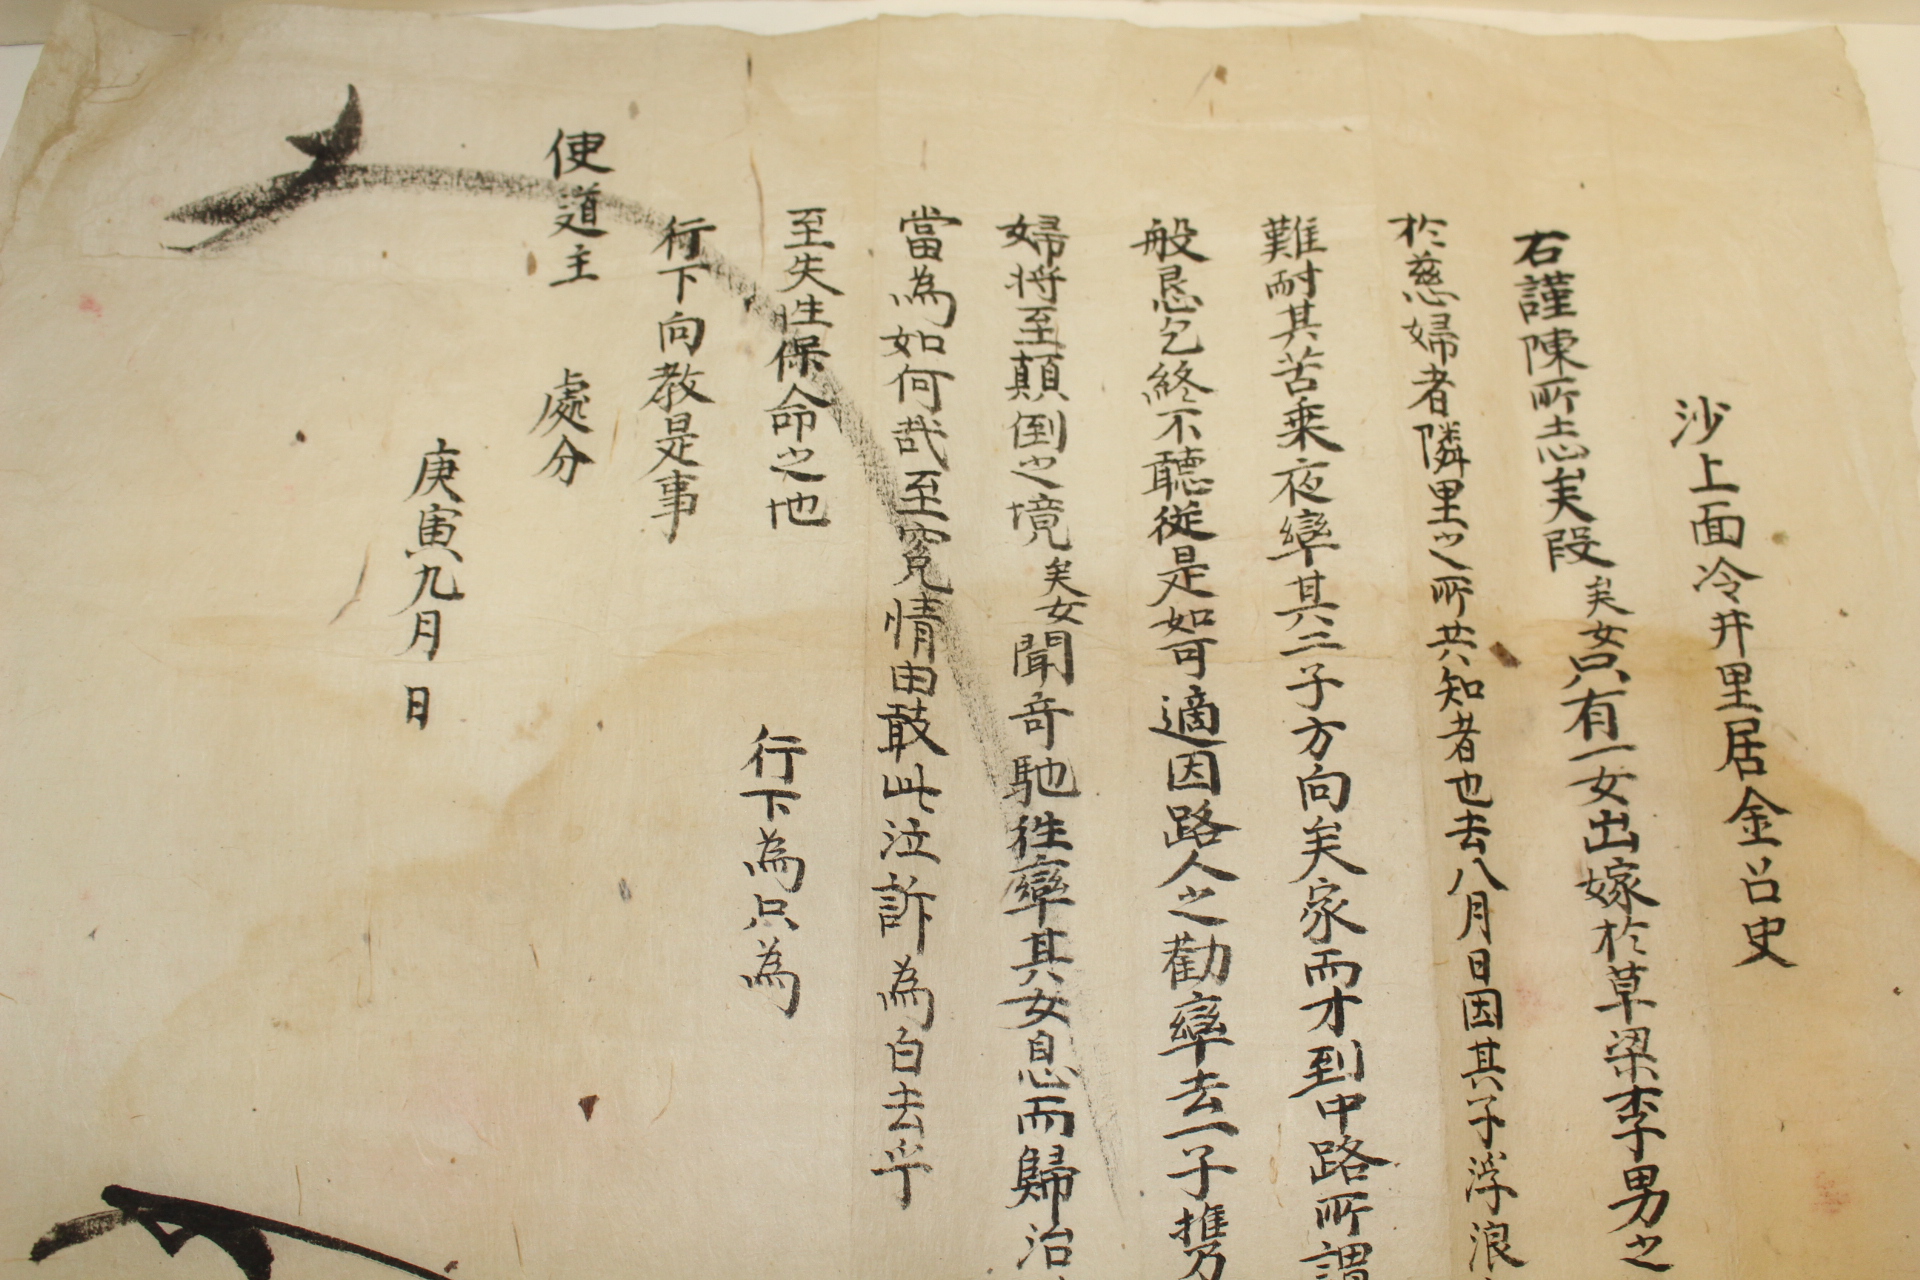 沙上面冷井里居金召史
右謹陳所志矣段矣女只有一女出嫁於草梁李男之
於慈婦者隣里之所共知者也去八月日因其子浮浪
難耐其苦乗夜率其二子方向矣家而才到中路所謂
般恳乞終不聽從是如可適因路人之勸率去一子携
婦将至顛倒之境矣女聞奇馳徃率其女息而歸治
當為如何哉至寃情由敢此泣訴為白去乎
至失性保命之地 行下為只為
行下向教是事
使道主 處分
庚寅九月 日